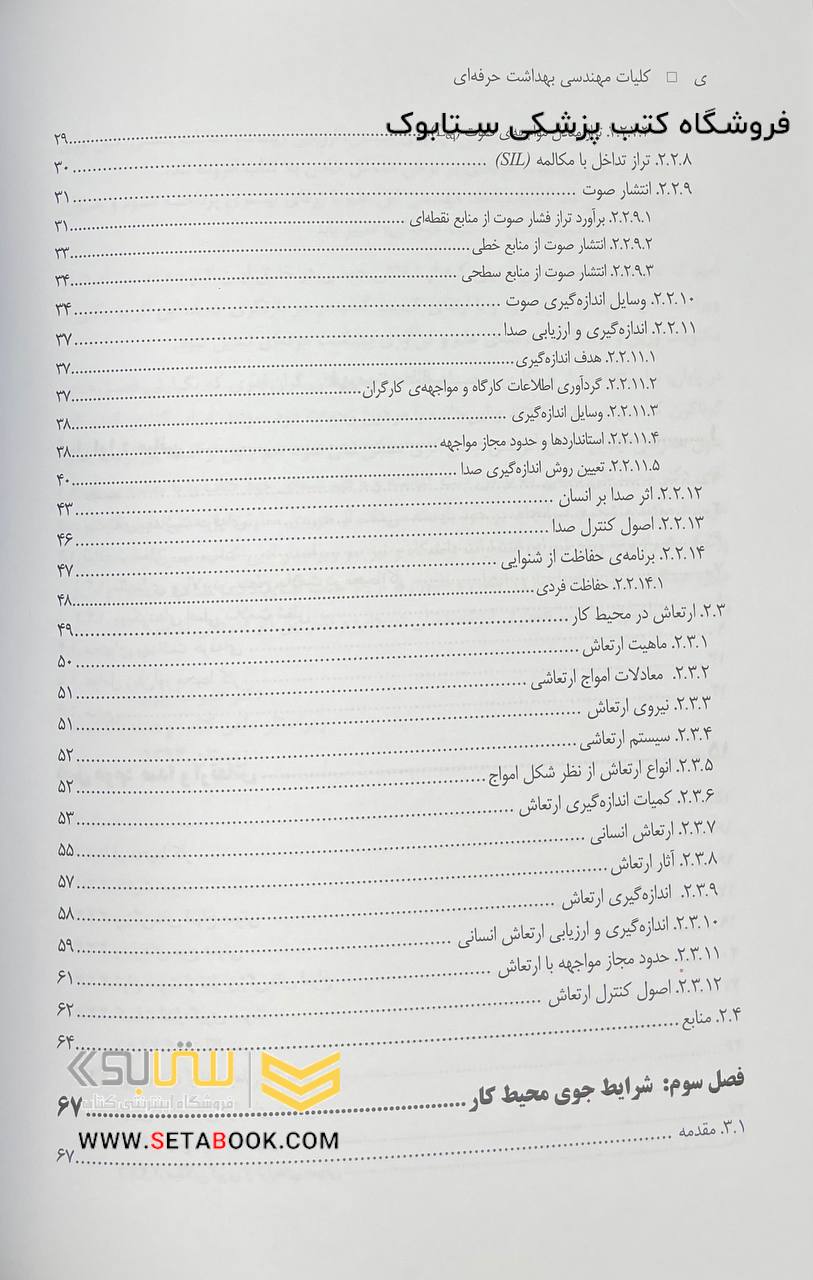 ی □ کلیات مهندسی بهداشت حرفه‌ای
فروشگاه کتب پزشکی ستابوک
۲۹
۲.۲.۸. تراز تداخل با مکالمه (SIL) ۳۰
۲.۲.۹. انتشار صوت ۳۱
۲.۲.۹.۱. برآورد تراز فشار صوت از منابع نقطه‌ای ۳۱
۲.۲.۹.۲. انتشار صوت از منابع خطی ۳۳
۲.۲.۹.۳. انتشار صوت از منابع سطحی ۳۴
۲.۲.۱۰. وسایل اندازه‌گیری صوت ۳۴
۲.۲.۱۱. اندازه‌گیری و ارزیابی صدا ۳۷
۲.۲.۱۱.۱. هدف اندازه‌گیری ۳۷
۲.۲.۱۱.۲. گردآوری اطلاعات کارگاه و مواجهه‌ی کارگران ۳۷
۲.۲.۱۱.۳. وسایل اندازه‌گیری ۳۸
۲.۲.۱۱.۴. استانداردها و حدود مجاز مواجهه ۳۸
۲.۲.۱۱.۵. تعیین روش اندازه‌گیری صدا ۴۰
۲.۲.۱۲. اثر صدا بر انسان ۴۳
۲.۲.۱۳. اصول کنترل صدا ۴۶
۲.۲.۱۴. برنامه‌ی حفاظت از شنوایی ۴۷
۲.۲.۱۴.۱. حفاظت فردی ۴۸
۲.۳. ارتعاش در محیط کار ۴۹
۲.۳.۱. ماهیت ارتعاش ۵۰
۲.۳.۲. معادلات امواج ارتعاشی ۵۱
۲.۳.۳. نیروی ارتعاش ۵۱
۲.۳.۴. سیستم ارتعاشی ۵۲
۲.۳.۵. انواع ارتعاش از نظر شکل امواج ۵۲
۲.۳.۶. کمیات اندازه‌گیری ارتعاش ۵۳
۲.۳.۷. ارتعاش انسانی ۵۵
۲.۳.۸. آثار ارتعاش ۵۷
۲.۳.۹. اندازه‌گیری ارتعاش ۵۸
۲.۳.۱۰. اندازه‌گیری و ارزیابی ارتعاش انسانی ۵۹
۲.۳.۱۱. حدود مجاز مواجهه با ارتعاش ۶۱
۲.۳.۱۲. اصول کنترل ارتعاش ۶۲
۲.۴. منابع ۶۴
ستابوک
فروشگاه اینترنتی کتاب
فصل سوم: شرایط جوی محیط کار ۶۷
WWW.SETABOOK.COM
۳.۱. مقدمه ۶۷